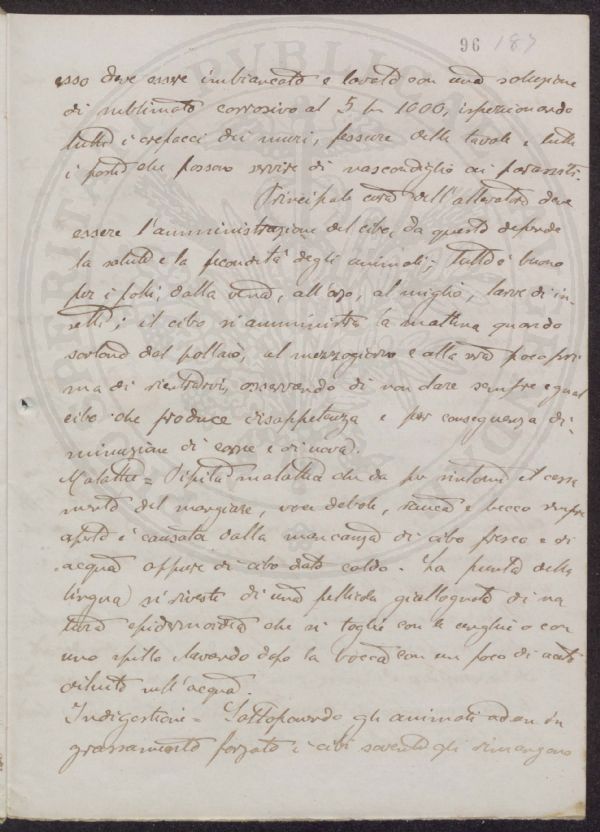 96 187
esso deve essere imbiancato e lavato con una soluzione
di sublimato corrosivo al 5 per 1000, ispezionando
tutti i crepacci dei muri, fessure delle tavole e tutti
i posti che possono servire di nascondiglio ai parassiti.
Principale cura dell'allevatore deve
essere l'amministrazione del cibo, da questo dipende
la salute e la fecondità degli animali; tutto è buono
per i polli, dalla avena, all'orzo, al miglio, larve di in-
setti; il cibo si amministra la mattina quando
sortono dal pollaio, al mezzogiorno e alla sera poco pri-
ma di rientrarvi, osservando di non dare sempre egual
cibo che produce disappetenza e per conseguenza di-
minuzione di carne e di uova.
Malattie = Pipita malattia che da per sintomi il
del mangiare, voce debole, e becco sempre
aperto è causata dalla mancanza di cibo fresco e di
acqua oppure di cibo dato caldo. La punta della
lingua si riveste di una pellicola giallognola di na
tura epidermoidea che si toglie con le unghie o con
uno spillo lavando dopo la bocca con un poco di aceto
diluito nell'acqua.
Indigestione = Sottoponendo gli animali ad un in
grassamento forzato i cibi sovente gli rimangono